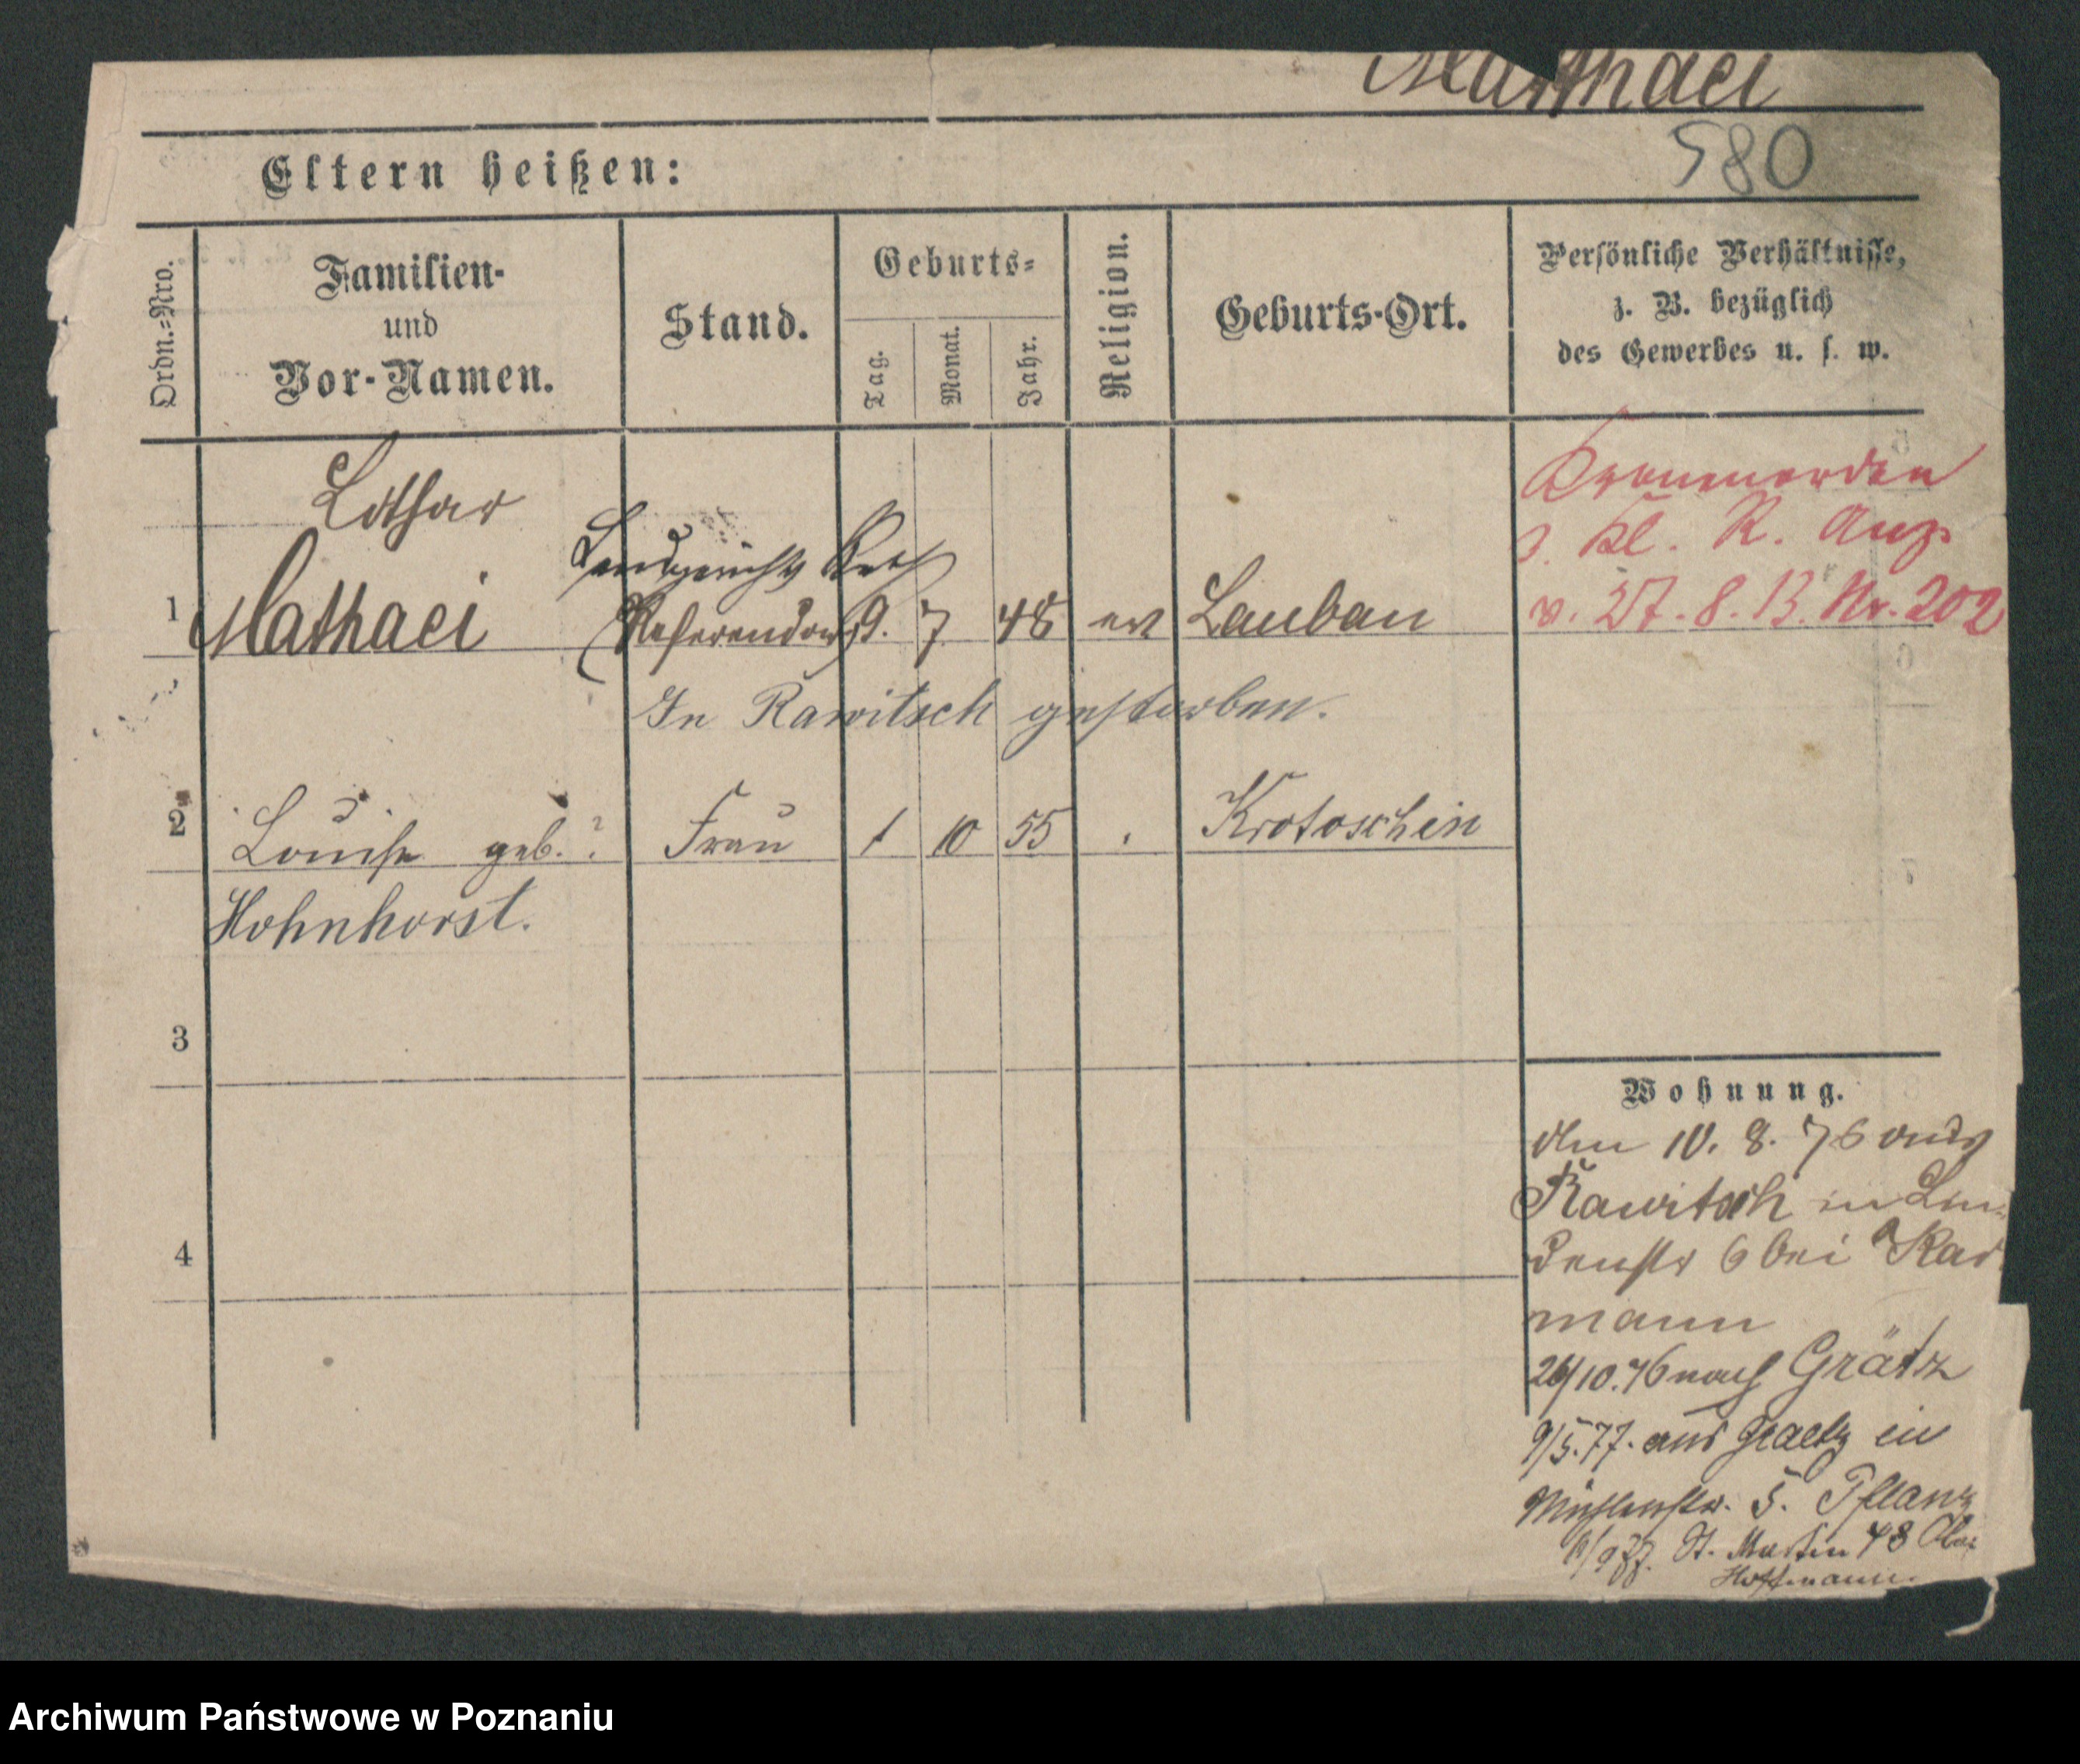 Matthaei
580
Eltern heißen:
Ordn.-Nro.
Familien-
und
Vor-Namen.
Stand.
Geburts-
Tag.
Monat.
Jahr.
Religion.
Geburts-Ort.
Persönliche Verhältnisse,
z. B. bezüglich
des Gewerbes u. s. w.
Kronenorden
3. Kl. R. Anz.
v. 27.8.13. Nr. 202
Lothar
Landgerichts Rath
1 Mathaei (Referendar) 9. 7 48 ev Lauban
In Rawitsch gestorben.
2 Louise geb. ? Frau 1 10 55 Krotoschin
Hohnhorst.
3
4
Wohnung.
den 10. 8. 76 aus
Rawitsch in Lin-
denstr 6 bei Kad
mann
26/10.76 nach Grätz
9/5.77. aus Graetz in
Mühlenstr. 5. Pflanz
St. Martin 48
Hoffmann.
Archiwum Państwowe w Poznaniu